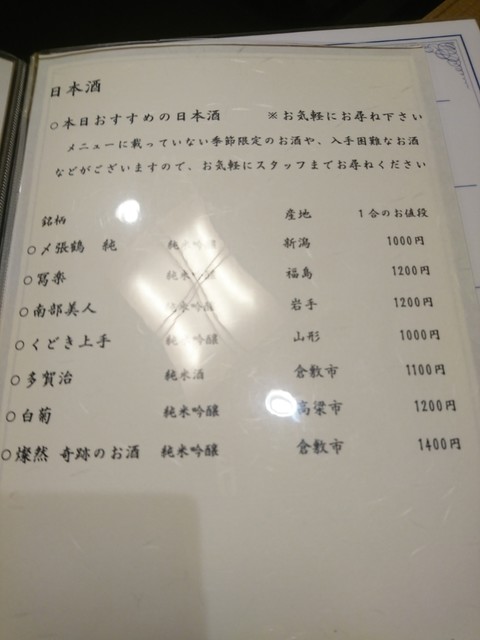 日本酒
○本日おすすめの日本酒 ※お気軽にお尋ね下さい
メニューに載っていない季節限定のお酒や、入手困難なお酒
などがございますので、お気軽にスタッフまでお尋ねください
銘柄 産地 1合のお値段
○〆張鶴 純 純米吟醸 新潟 1000円
○冩楽 純米吟醸 福島 1200円
○南部美人 純米吟醸 岩手 1200円
○くどき上手 純米吟醸 山形 1000円
○多賀治 純米酒 倉敷市 1100円
○白菊 純米吟醸 高梁市 1200円
○燦然 奇跡のお酒 純米吟醸 倉敷市 1400円